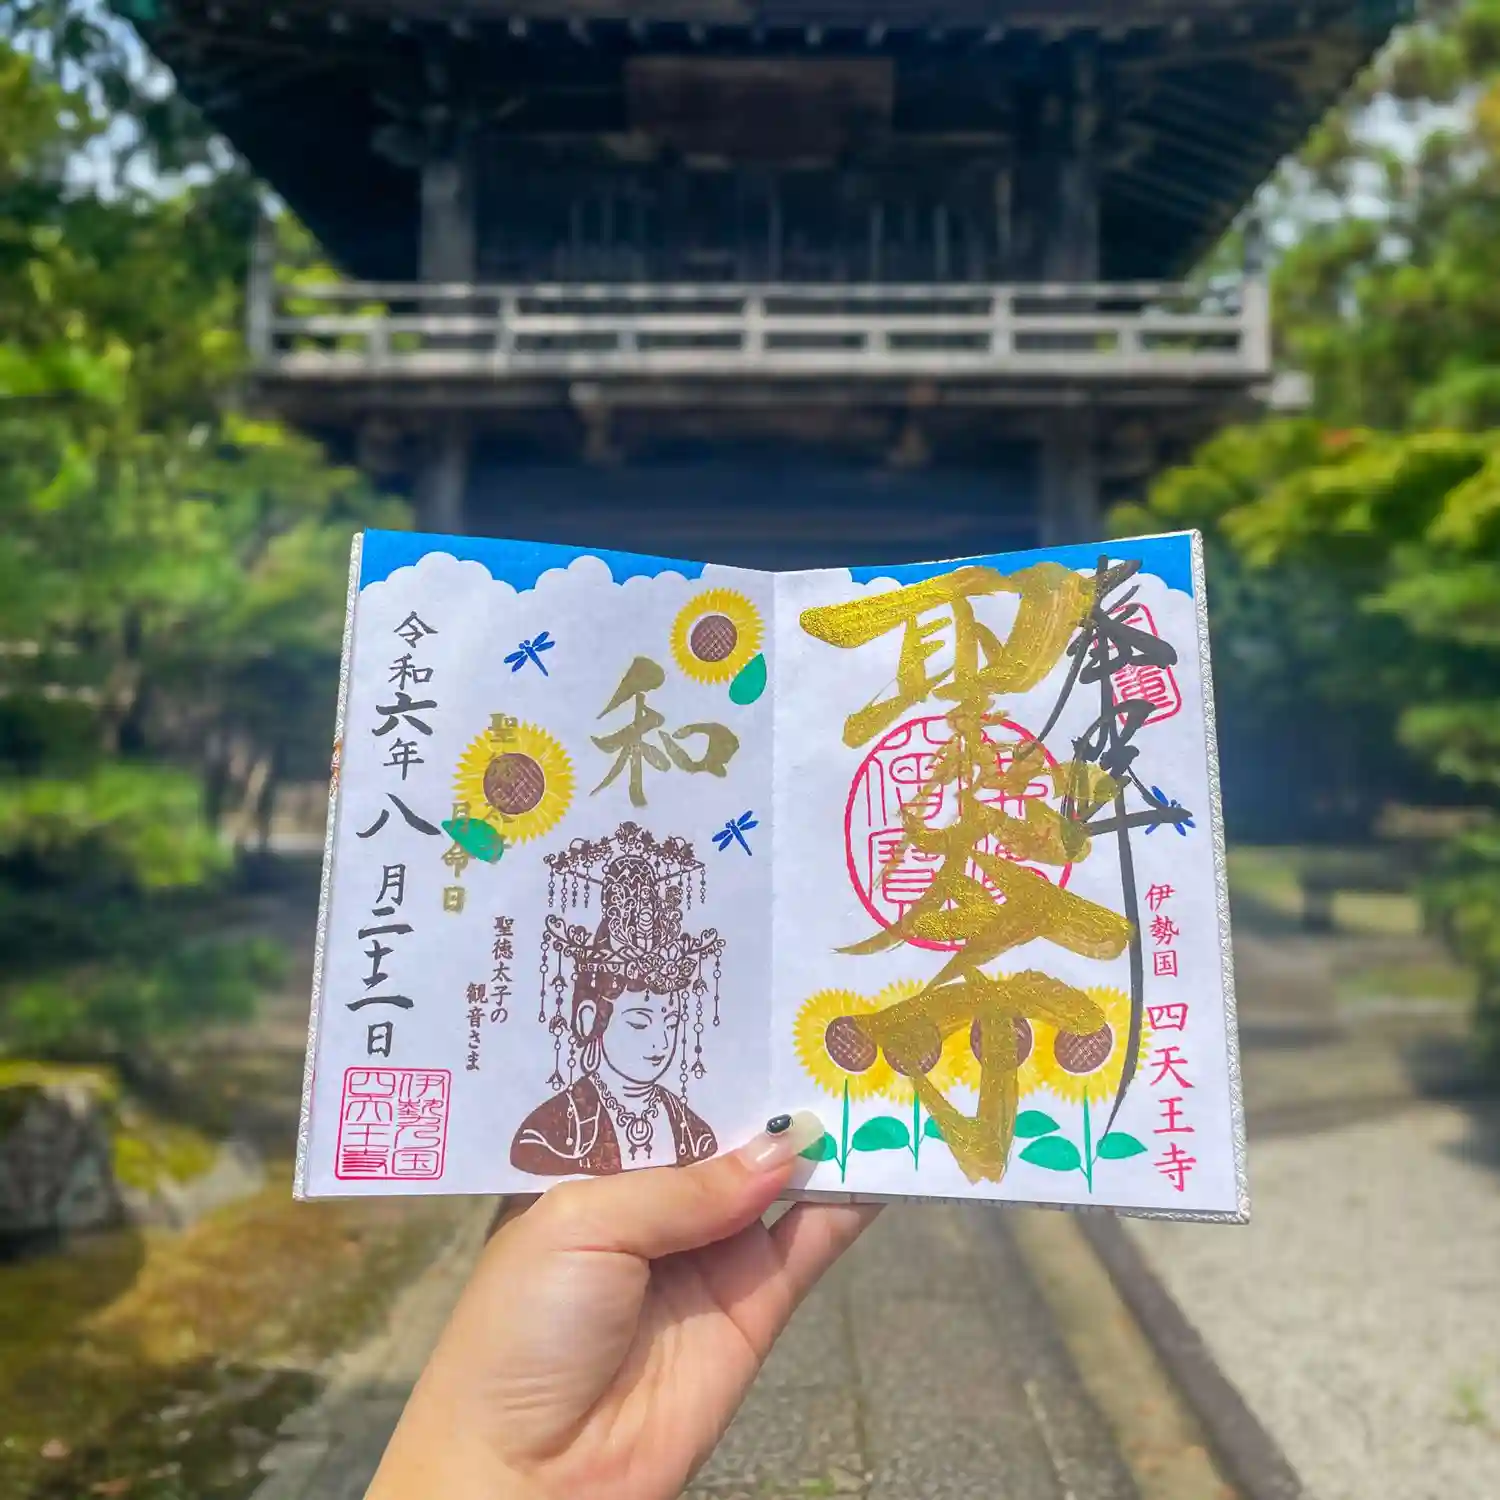 奉拝
聖徳太子
伊勢国 四天王寺
和
聖徳太子
月命日
聖徳太子の
観音さま
令和六年八月二十二日
伊勢国
四天王寺